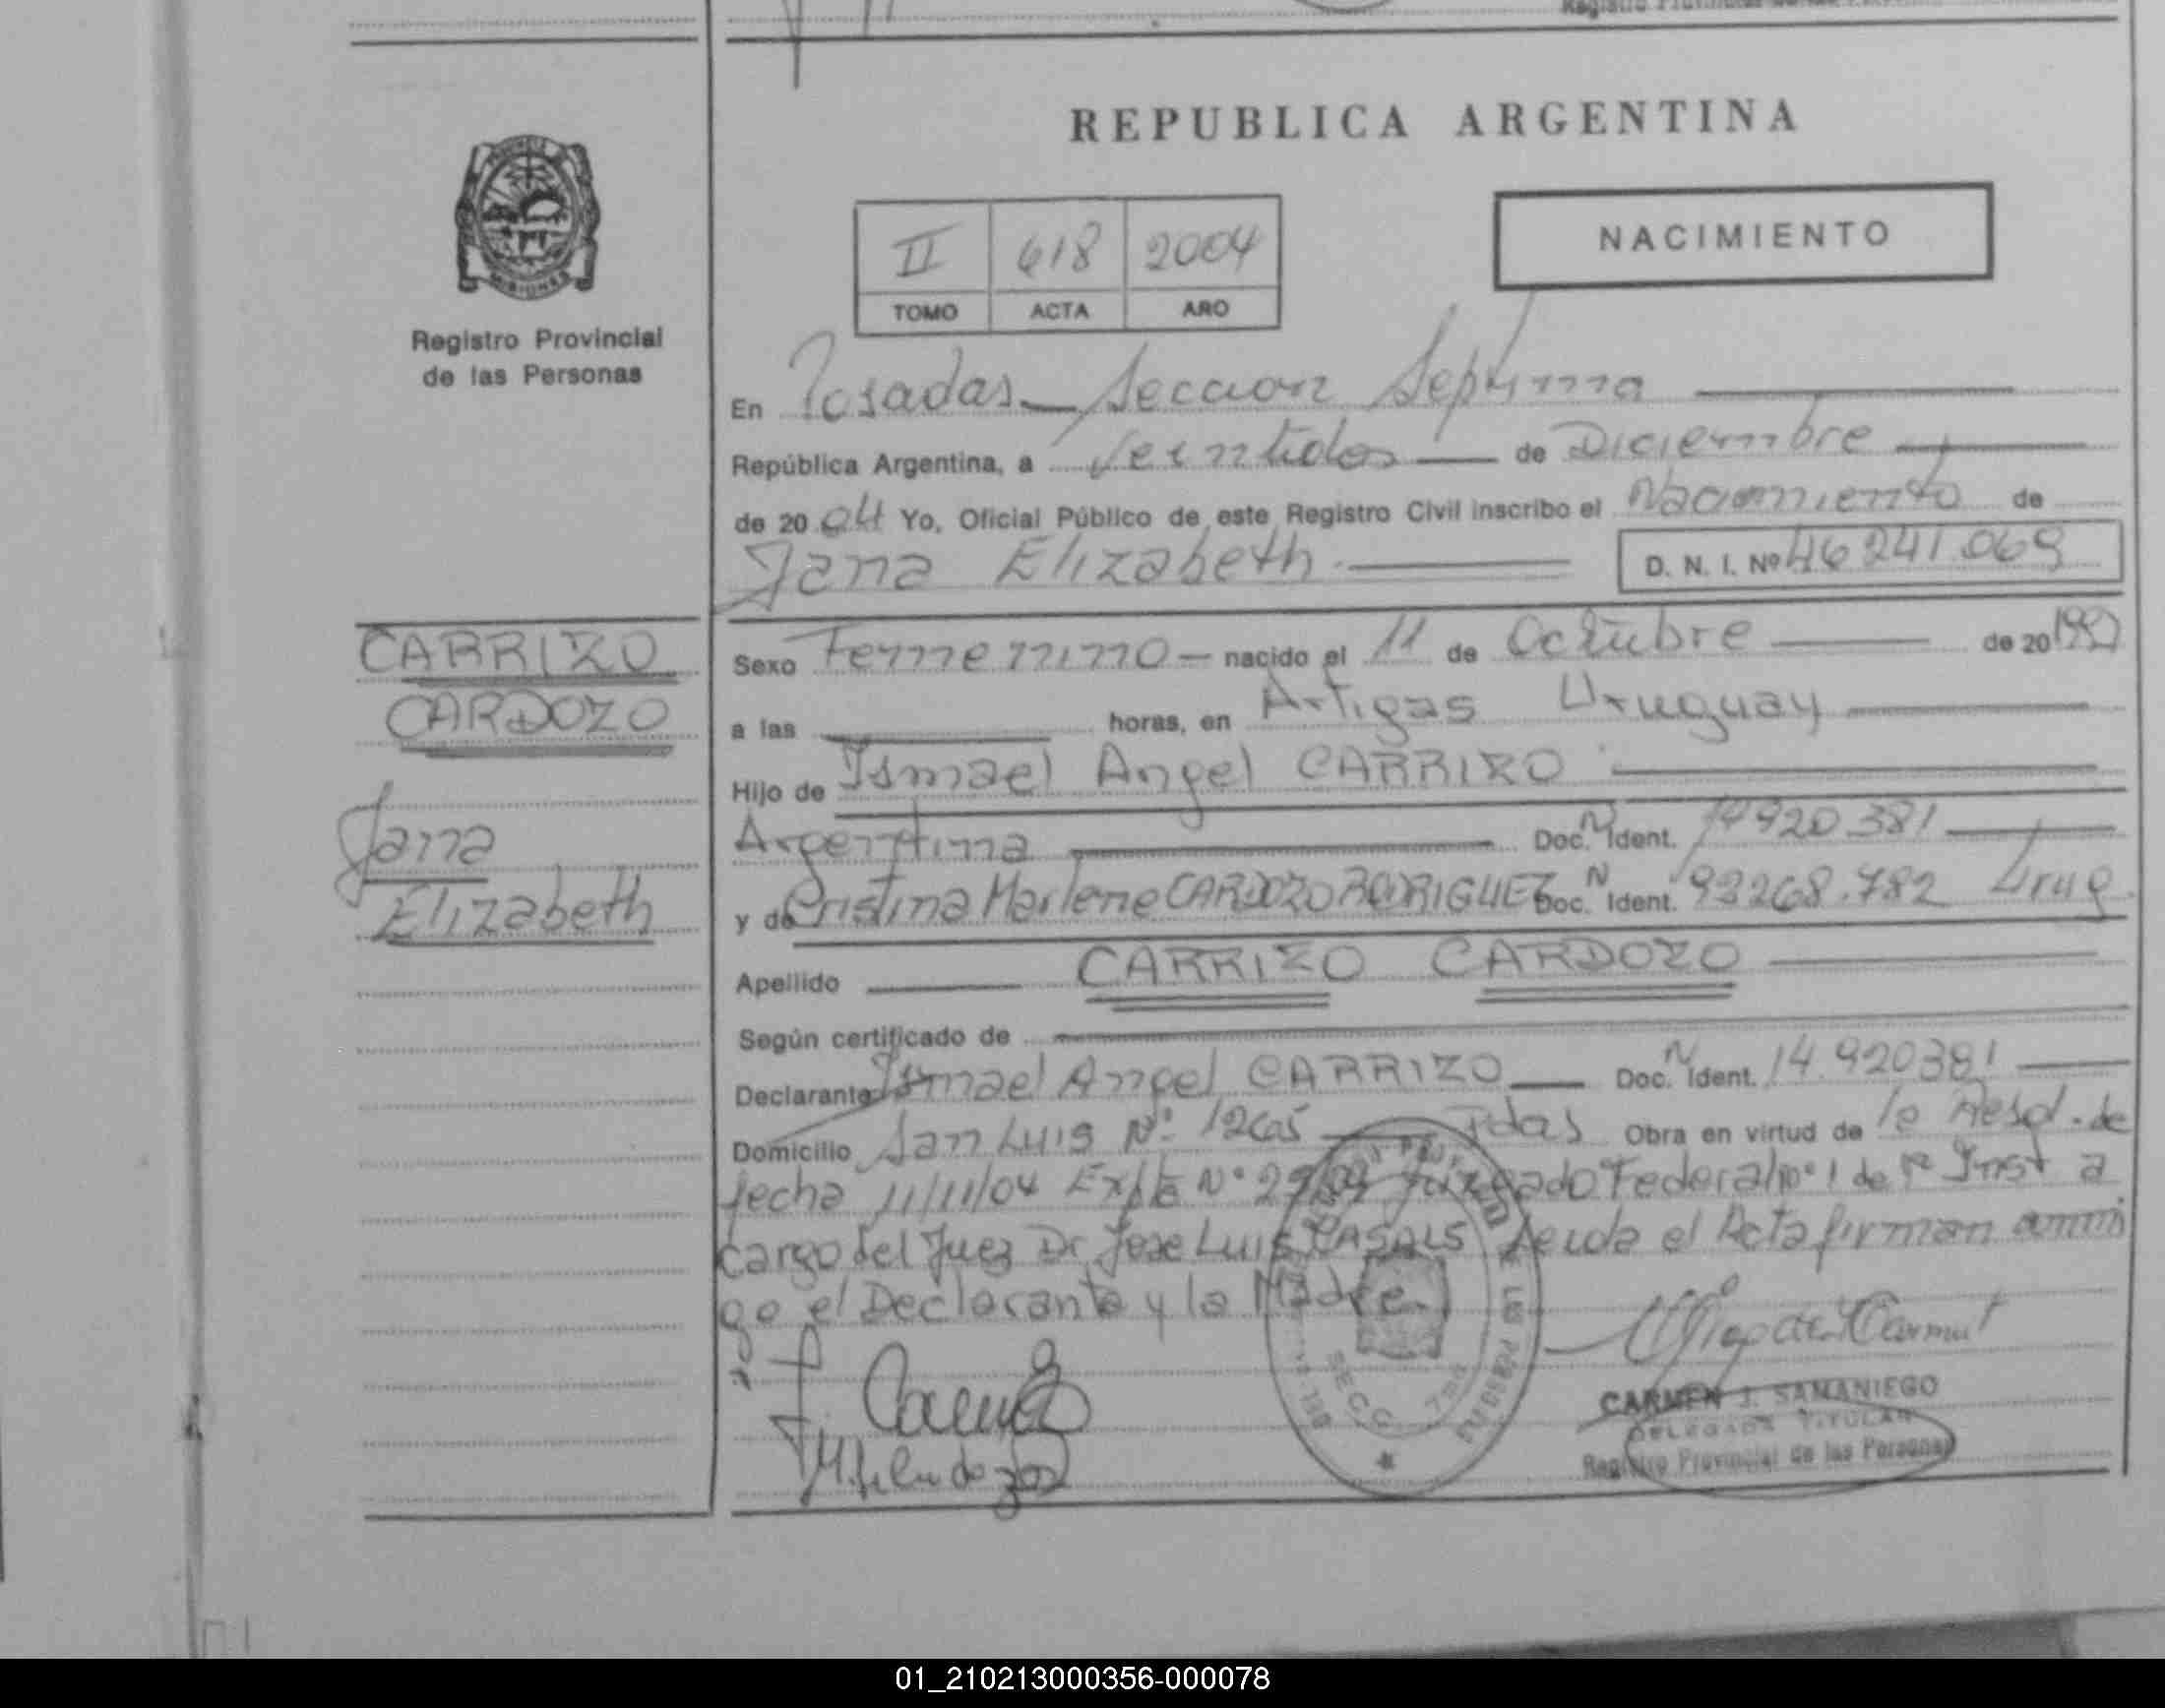 REPUBLICA ARGENTINA
NACIMIENTO
II 618 2004
TOMO ACTA AÑO
Registro Provincial
de las Personas
En Posadas - Seccion Septima
República Argentina, a Veintidos de Diciembre
de 20 04 Yo, Oficial Público de este Registro Civil inscribo el Nacimiento de
Jana Elizabeth D. N. I. Nº 46241.069
Sexo Femenino - nacido el 11 de Octubre de 20 1992
CARRIZO
CARDOZO
Jana
Elizabeth
a las horas, en Artigas Uruguay
Hijo de Ismael Angel CARRIZO
Argentina Doc. N Ident. 14920381
y de Cristina Marlene CARDOZO RODRIGUEZ Doc. N Ident. 93268.782 Urug
Apellido CARRIZO CARDOZO
Según certificado de
Declarante Ismael Angel CARRIZO Doc. N Ident. 14.920381
Domicilio San Luis Nº 1265 Pdas Obra en virtud de la Resol. de
fecha 11/11/04 Expte Nº Juzgado Federal nº 1 de 1ª Inst a
cargo del Juez Dr Jose Luis CASALS Leida el Acta firman conmi
go el Declarante y la Madre.
SECC. 7ma
CARMEN J. SAMANIEGO
DELEGADA TITULAR
Registro Provincial de las Personas
01_210213000356-000078